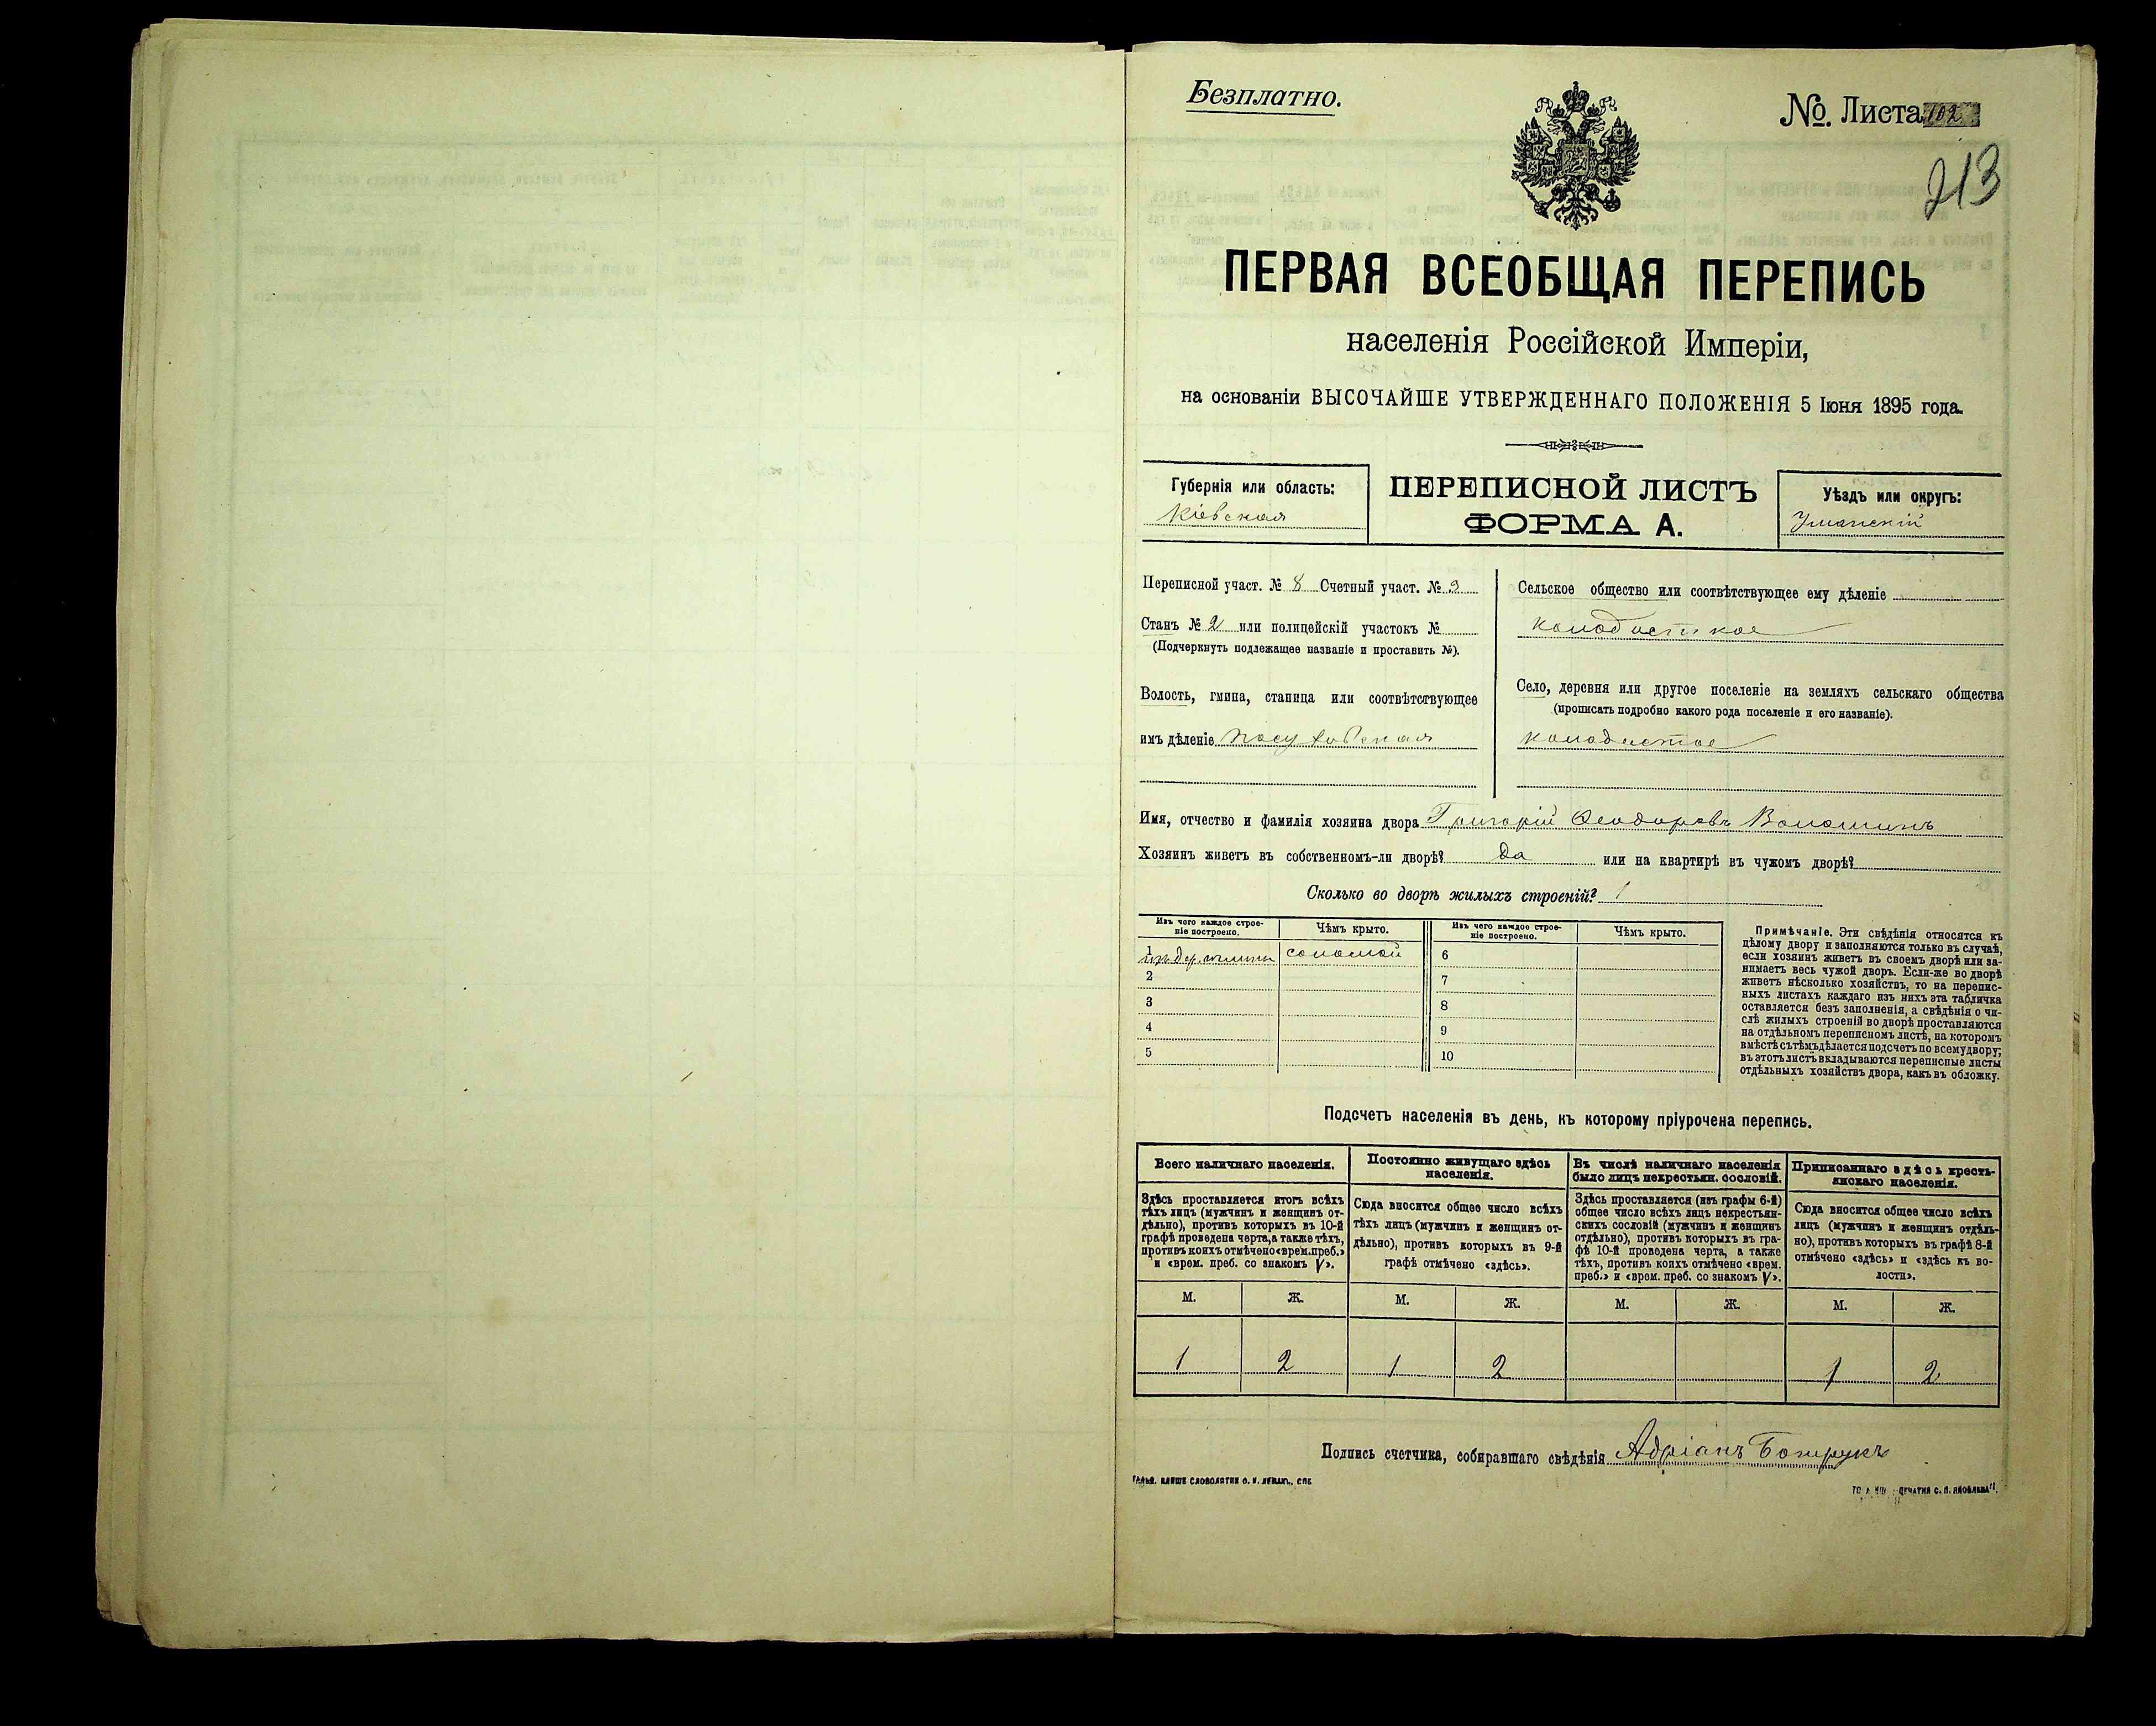 Безплатно.
№. Листа 102
213
ПЕРВАЯ ВСЕОБЩАЯ ПЕРЕПИСЬ
населенія Россійской Имперіи,
на основаніи ВЫСОЧАЙШЕ УТВЕРЖДЕННАГО ПОЛОЖЕНІЯ 5 Іюня 1895 года.
Губернія или область:
Кіевская
ПЕРЕПИСНОЙ ЛИСТЪ
ФОРМА А.
Уѣздъ или округъ:
Уманскій
Переписной участ. № 8 Счетный участ. № 3
Станъ № 2 или полицейскій участокъ №
(Подчеркнуть подлежащее названіе и проставить №).
Волость, гмина, станица или соотвѣтствующее
имъ дѣленіе Посуховская
Сельское общество или соотвѣтствующее ему дѣленіе
колодисткое
Село, деревня или другое поселеніе на земляхъ сельскаго общества
(прописать подробно какого рода поселеніе и его названіе).
колодистое
Имя, отчество и фамилія хозяина двора Григорій Феодоровъ Волошинъ
Хозяинъ живетъ въ собственномъ-ли дворѣ? да или на квартирѣ въ чужомъ дворѣ?
Сколько во дворѣ жилыхъ строеній? 1
Изъ чего каждое строе-
ніе построено.
Чѣмъ крыто.
Изъ чего каждое строе-
ніе построено.
Чѣмъ крыто.
1 изъ дер. глины соломой 6
2 7
3 8
4 9
5 10
Примѣчаніе. Эти свѣдѣнія относятся къ
цѣлому двору и заполняются только въ случаѣ,
если хозяинъ живетъ въ своемъ дворѣ или за-
нимаетъ весь чужой дворъ. Если-же во дворѣ
живетъ нѣсколько хозяйствъ, то на перепис-
ныхъ листахъ каждаго изъ нихъ эта табличка
оставляется безъ заполненія, а свѣдѣнія о чи-
слѣ жилыхъ строеній во дворѣ проставляются
на отдѣльномъ переписномъ листѣ, на которомъ
вмѣстѣ съ тѣмъ дѣлается подсчетъ по всему двору;
въ этотъ листъ вкладываются переписные листы
отдѣльныхъ хозяйствъ двора, какъ въ обложку.
Подсчетъ населенія въ день, къ которому пріурочена перепись.
Всего наличнаго населенія.
Здѣсь проставляется итогъ всѣхъ
тѣхъ лицъ (мужчинъ и женщинъ от-
дѣльно), противъ которыхъ въ 10-й
графѣ проведена черта, а также тѣхъ,
противъ коихъ отмѣчено «врем. преб.»
и «врем. преб. со знакомъ V».
Постоянно живущаго здѣсь
населенія.
Сюда вносится общее число всѣхъ
тѣхъ лицъ (мужчинъ и женщинъ от-
дѣльно), противъ которыхъ въ 9-й
графѣ отмѣчено «здѣсь».
Въ числѣ наличнаго населенія
было лицъ некрестьян. сословій.
Здѣсь проставляется (изъ графы 6-й)
общее число всѣхъ лицъ некрестьян-
скихъ сословій (мужчинъ и женщинъ
отдѣльно), противъ которыхъ въ гра-
фѣ 10-й проведена черта, а также
тѣхъ, противъ коихъ отмѣчено «врем.
преб.» и «врем. преб. со знакомъ V».
Приписаннаго здѣсь кресть-
янскаго населенія.
Сюда вносится общее число всѣхъ
лицъ (мужчинъ и женщинъ отдѣль-
но), противъ которыхъ въ графѣ 8-й
отмѣчено «здѣсь» и «здѣсь къ во-
лости».
М. Ж. М. Ж. М. Ж. М. Ж.
1 2 1 2 1 2
Подпись счетчика, собиравшаго свѣдѣнія Адріанъ